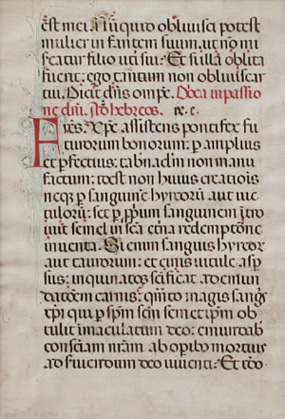 est mei. Nunquid obliuisci potest
mulier infantem suum, ut nō mi
seatur filio uti sui: Et si illa oblita
fuerit: ego tamen non obliuiscar
tui. Dicit dn̄s om̄ps. Dn̄ca in passio
ne dn̄i. Ad hebreos. 
Fr̄es. Xp̄c assistens pontifex fu
turorum bonorum: p amplius
et pfectius: tabnac̄lm non manu
factum: id est non huius creatiōis
neq; p sanguinē hyrcorū aut vic
tulorū: sed p pprium sanguinem ītro
iuit semel in sc̄a etn̄a redemptōne
inuenta. Si enim sanguis hyrcor
aut taurorum: et cinis uitule asp
sus: inquinatos sc̄ificat ad emun
datōem carnis: quāto magis sangs
xp̄i qui p spm̄ scm̄ semetip̄m ob
tulit inmaculatum deo: emundab
consciam nr̄am ab operibꝰ mortuis
ad seruiendum deo uiuenti: Et ideo